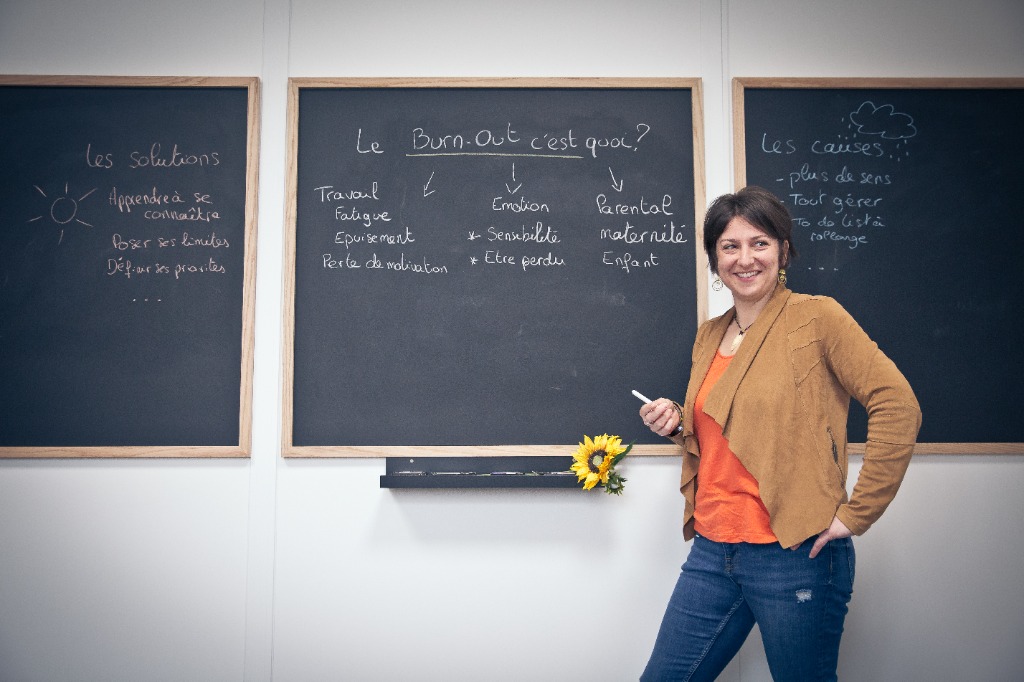 Les solutions
Apprendre à se
connaître
Poser ses limites
Définir ses priorités
...
Le Burn-Out c'est quoi?
Travail
Fatigue
Epuisement
Perte de motivation
Emotion
* Sensibilité
* Etre perdu
Parental
maternité
Enfant
Les causes
- plus de sens
Tout gérer
To do list à
rallonge
...